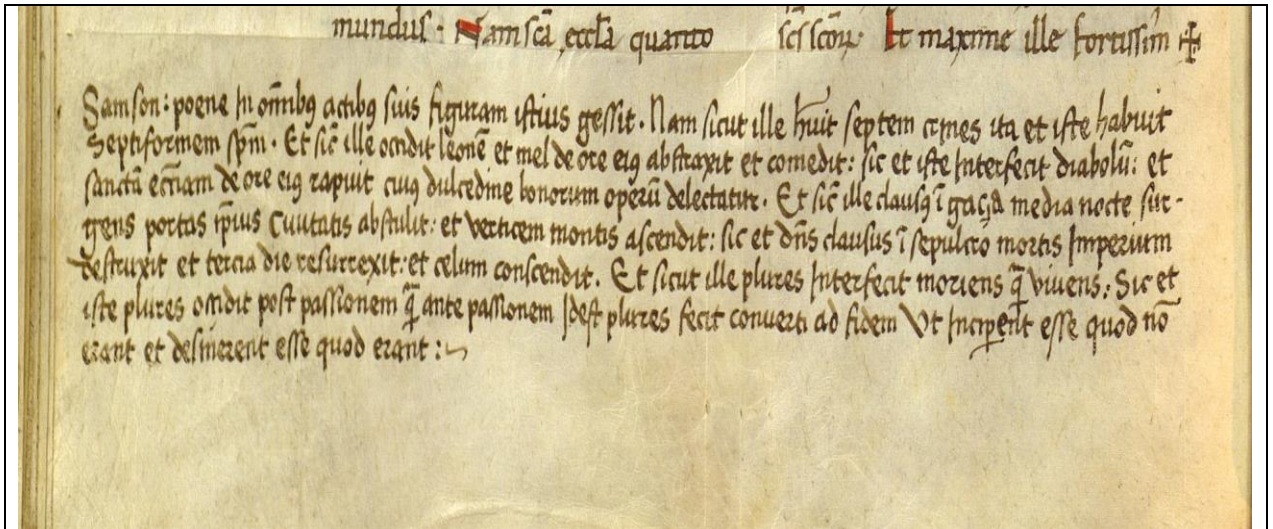 mundus · Nam scā eccła quanto scs scōꝝ Et maxime ille fortissim ⁜
Samson : poene In om̄ibꝯ actibꝯ suis figuram istius gessit . Nam sicut ille h̄uit septem crines ita et iste habuit
Septiformem sp̄m . Et sic̄ ille occidit leonē et mel de ore eiꝯ abstraxit et comedit : sic et iste Interfecit diabolū : et
sanctā ecc̄iam de ore eiꝯ rapuit cuiꝯ dulcedine bonorum operū delectatur . Et sic̄ ille clausꝯ ī gaza media nocte sur-
gens portas ip̄ius Ciuitatis abstulit : et verticem montis ascendit : sic et dn̄s clausus ī sepulcro mortis Imperium
destruxit et tercia die resurrexit : et celum conscendit . Et sicut ille plures Interfecit moriens q̄ª viuens . Sic et
iste plures occidit post passionem q̄ª ante passionem Idest plures fecit conuerti ad fidem Vt Inciꝑent esse quod nō
erant et desinerent esse quod erant :